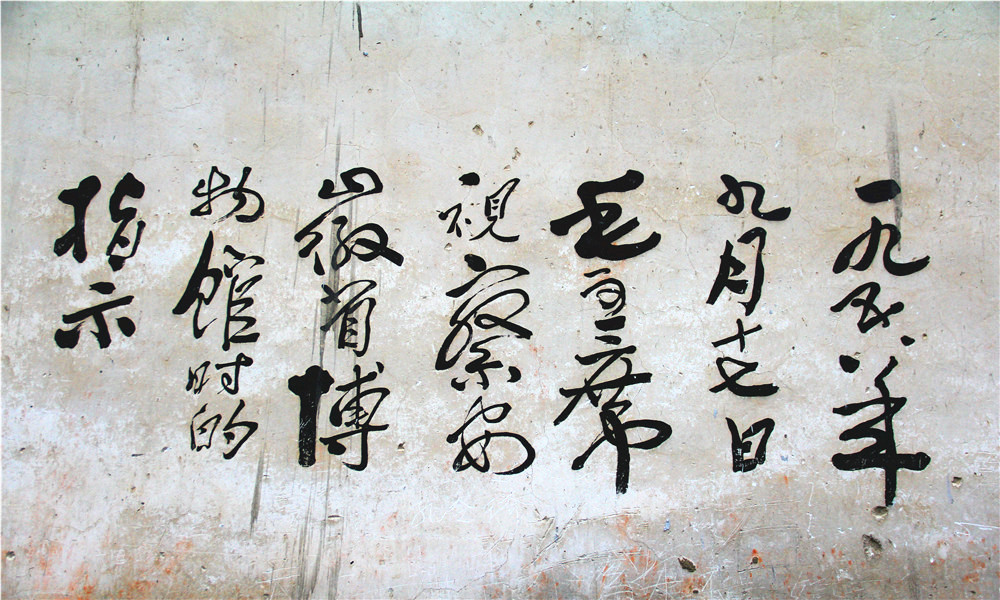 一九五八年
九月十七日
毛主席
视察安
徽省博
物馆时的
指示